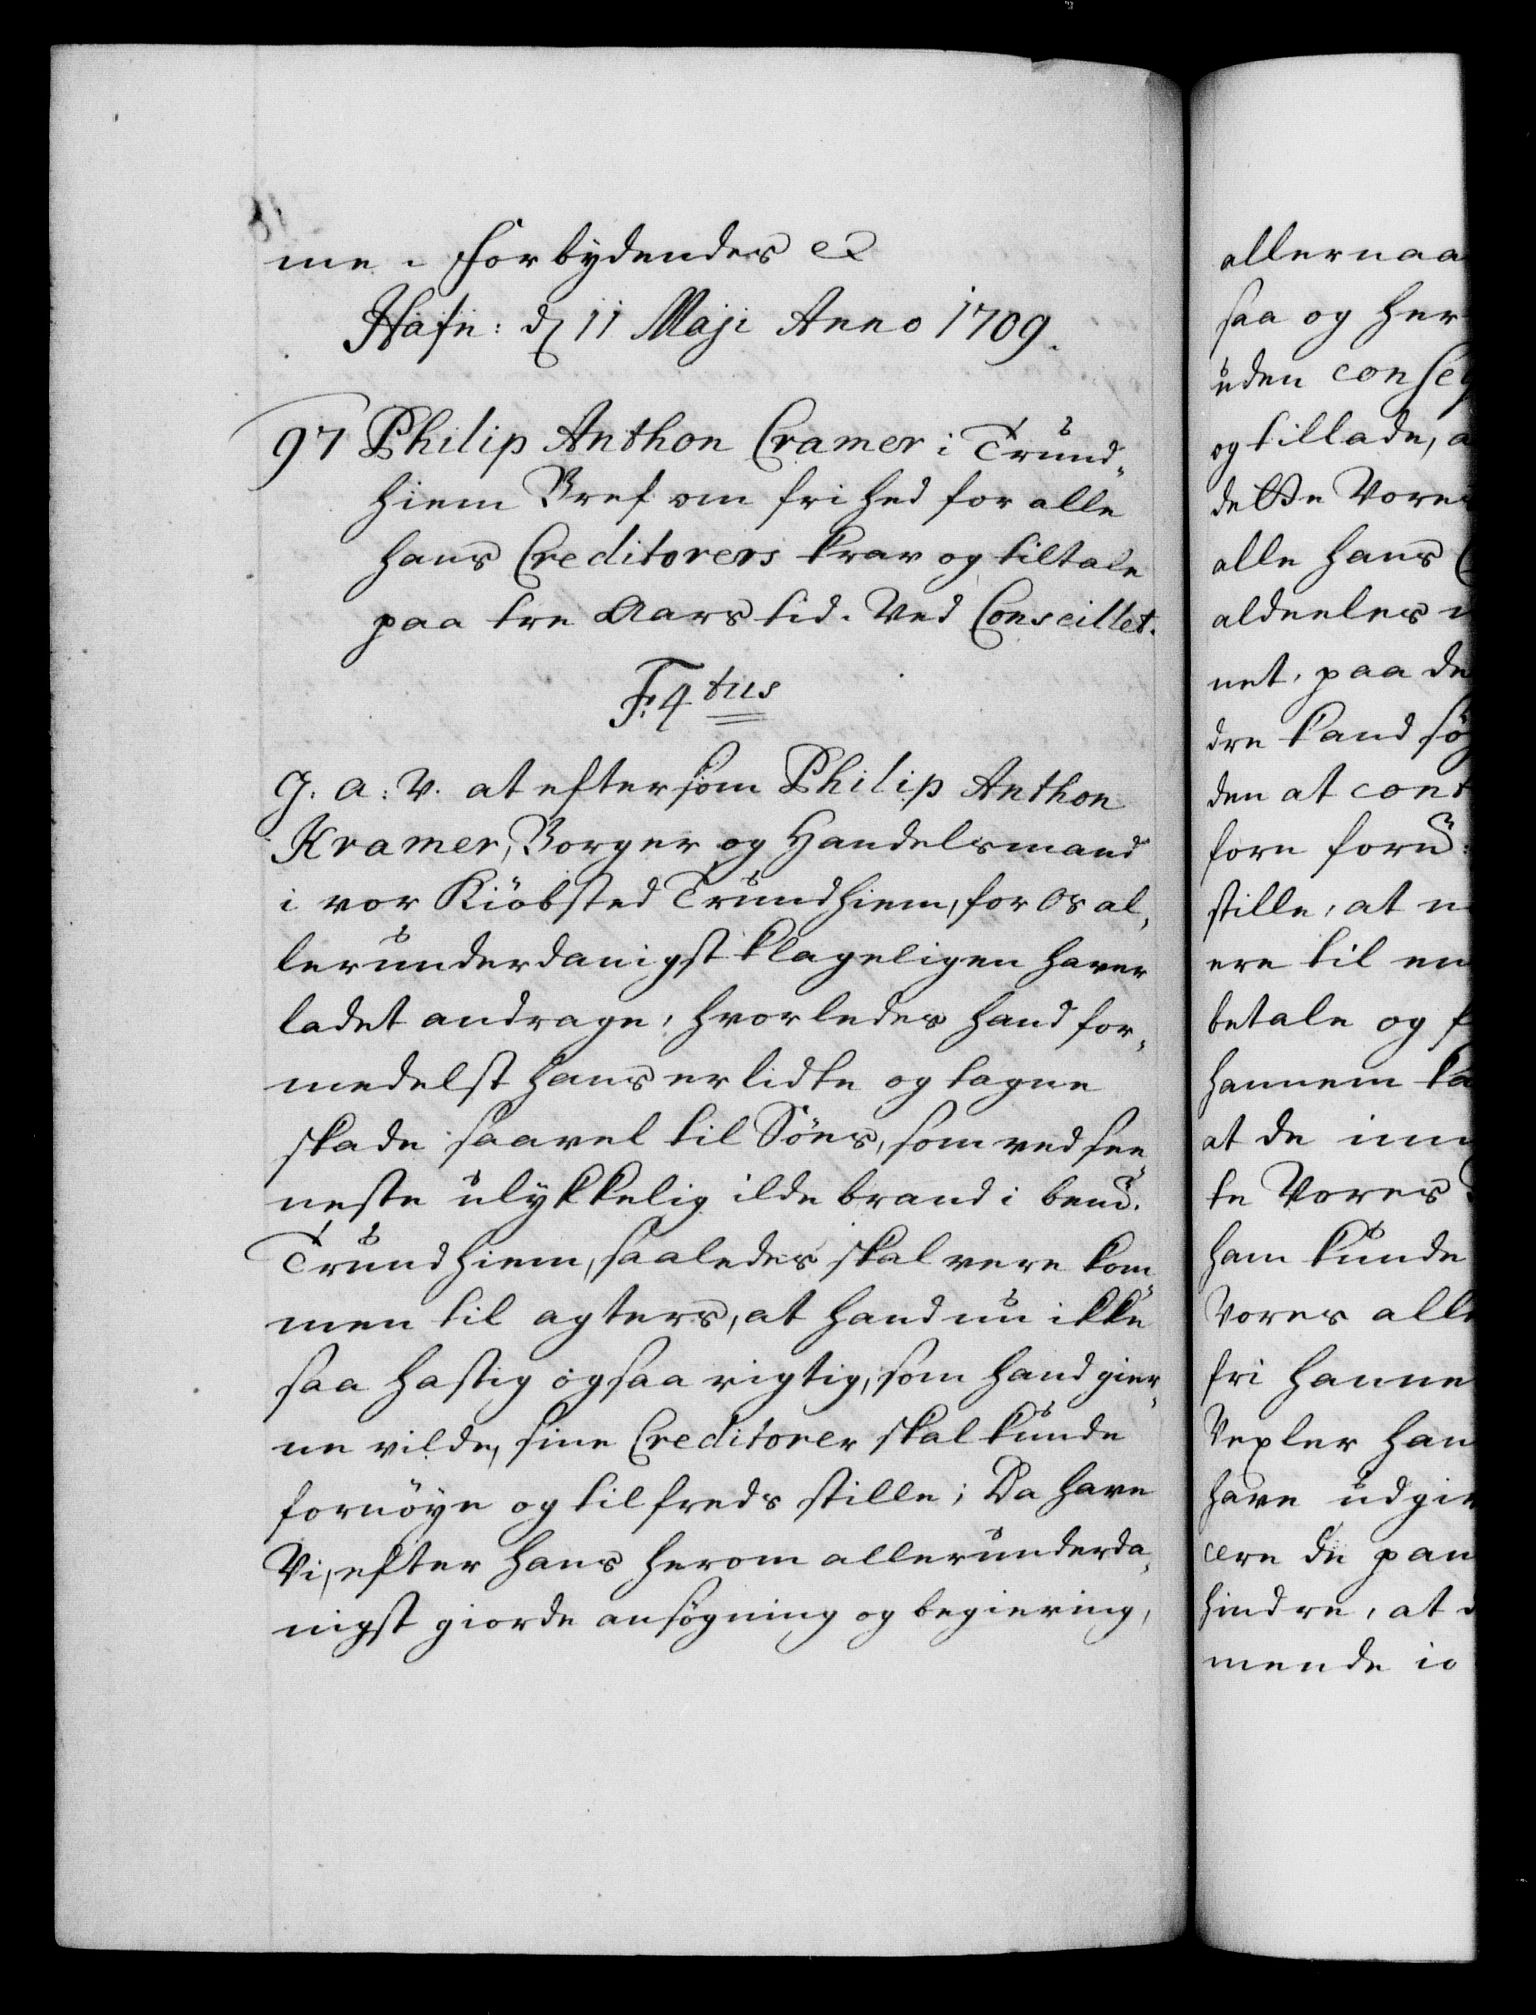 me. Forbydendes etc
Hafn: d 11 Maji Anno 1709.
97 Philip Anthon Cramer i Trund-
hiem Bref om frihed for alle
hans Creditorers krav og tiltale
paa tre Aars tid. Ved Conseillet.
F. 4tus
G. A: V. at eftersom Philip Anthon
Kramer, Borger og Handelsmand
i vor Kiöbsted Trundhiem, for Os al-
lerunderdanigst klageligen haver
ladet andrage, hvorledes hand for-
medelst hans erlidte og tagne
skade saavel til Söes, som ved see-
neste ulykkelig ildebrand i bemt.
Trundhiem, saaledes skal vere kom-
men til agters, at hand nu ikke
saa hastig og saa rigtig, som hand gier-
ne vilde, sine Creditorer skal kunde
fornöye og tilfreds stille; Da have
Vi, efter hans herom allerunderda-
nigst giorde ansögning og begiering,
allernaa
saa og her
uden conseq
og tillade, a
dette Vores
alle hans C
aldeeles
net, paa de
dre kand sög
den at cont
forn foru:
stille, at
ere til en
betale og f
hannem ka
at de im
te Vores
ham kunde
Vores alle
fri hanne
Vexler han
have udgiv
ere de pan
hindre, at
mende io